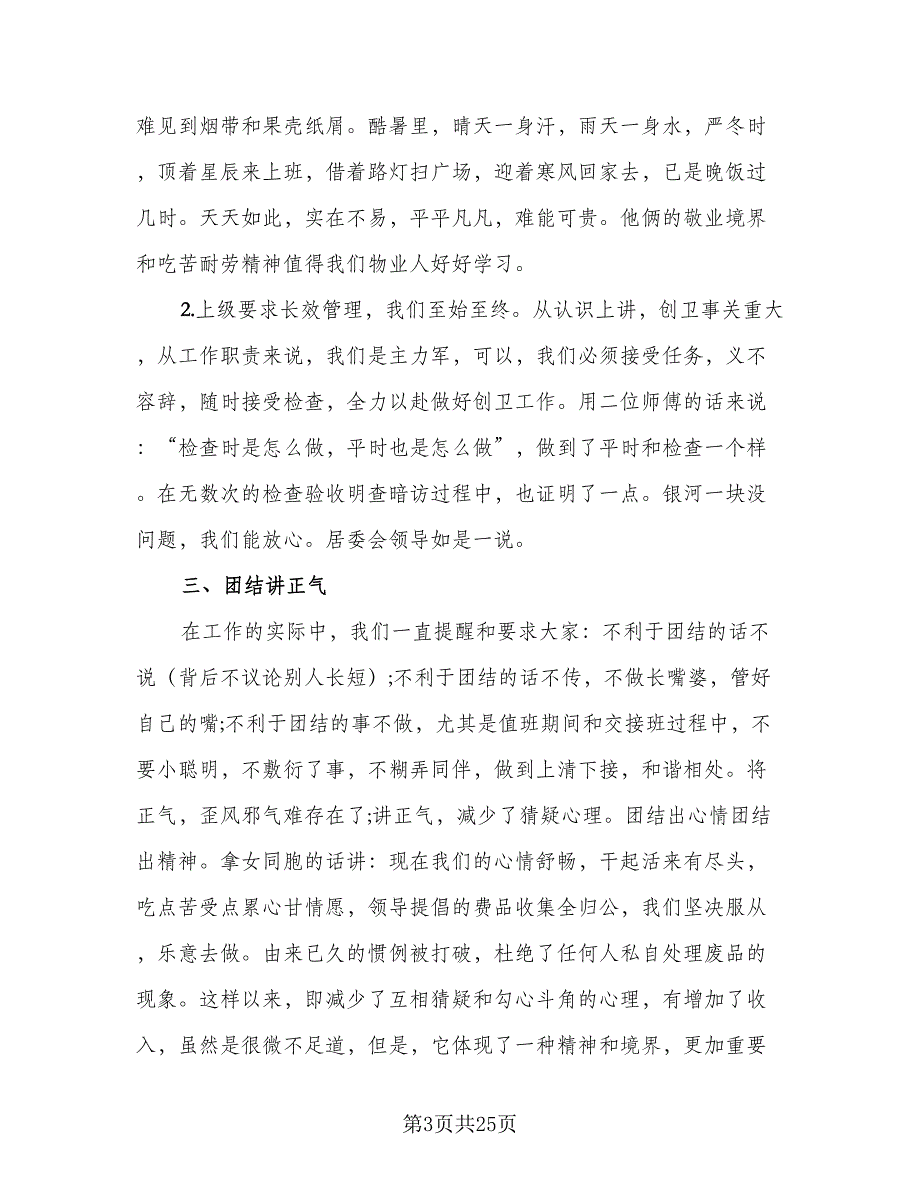 难见到烟带和果壳纸屑。酷暑里，晴天一身汗，雨天一身水，严冬时
，顶着星辰来上班，借着路灯扫广场，迎着寒风回家去，已是晚饭过
几时。天天如此，实在不易，平平凡凡，难能可贵。他俩的敬业境界
和吃苦耐劳精神值得我们物业人好好学习。
2.上级要求长效管理，我们至始至终。从认识上讲，创卫事关重大
，从工作职责来说，我们是主力军，可以，我们必须接受任务，义不
容辞，随时接受检查，全力以赴做好创卫工作。用二位师傅的话来说
：“检查时是怎么做，平时也是怎么做”，做到了平时和检查一个样
。在无数次的检查验收明查暗访过程中，也证明了一点。银河一块没
问题，我们能放心。居委会领导如是一说。
三、团结讲正气
在工作的实际中，我们一直提醒和要求大家：不利于团结的话不
说（背后不议论别人长短）;不利于团结的话不传，不做长嘴婆，管好
自己的嘴;不利于团结的事不做，尤其是值班期间和交接班过程中，不
要小聪明，不敷衍了事，不糊弄同伴，做到上清下接，和谐相处。将
正气，歪风邪气难存在了;讲正气，减少了猜疑心理。团结出心情团结
出精神。拿女同胞的话讲：现在我们的心情舒畅，干起活来有尽头，
吃点苦受点累心甘情愿，领导提倡的费品收集全归公，我们坚决服从
，乐意去做。由来已久的惯例被打破，杜绝了任何人私自处理废品的
现象。这样以来，即减少了互相猜疑和勾心斗角的心理，有增加了收
入，虽然是很微不足道，但是，它体现了一种精神和境界，更加重要
第3页共25页